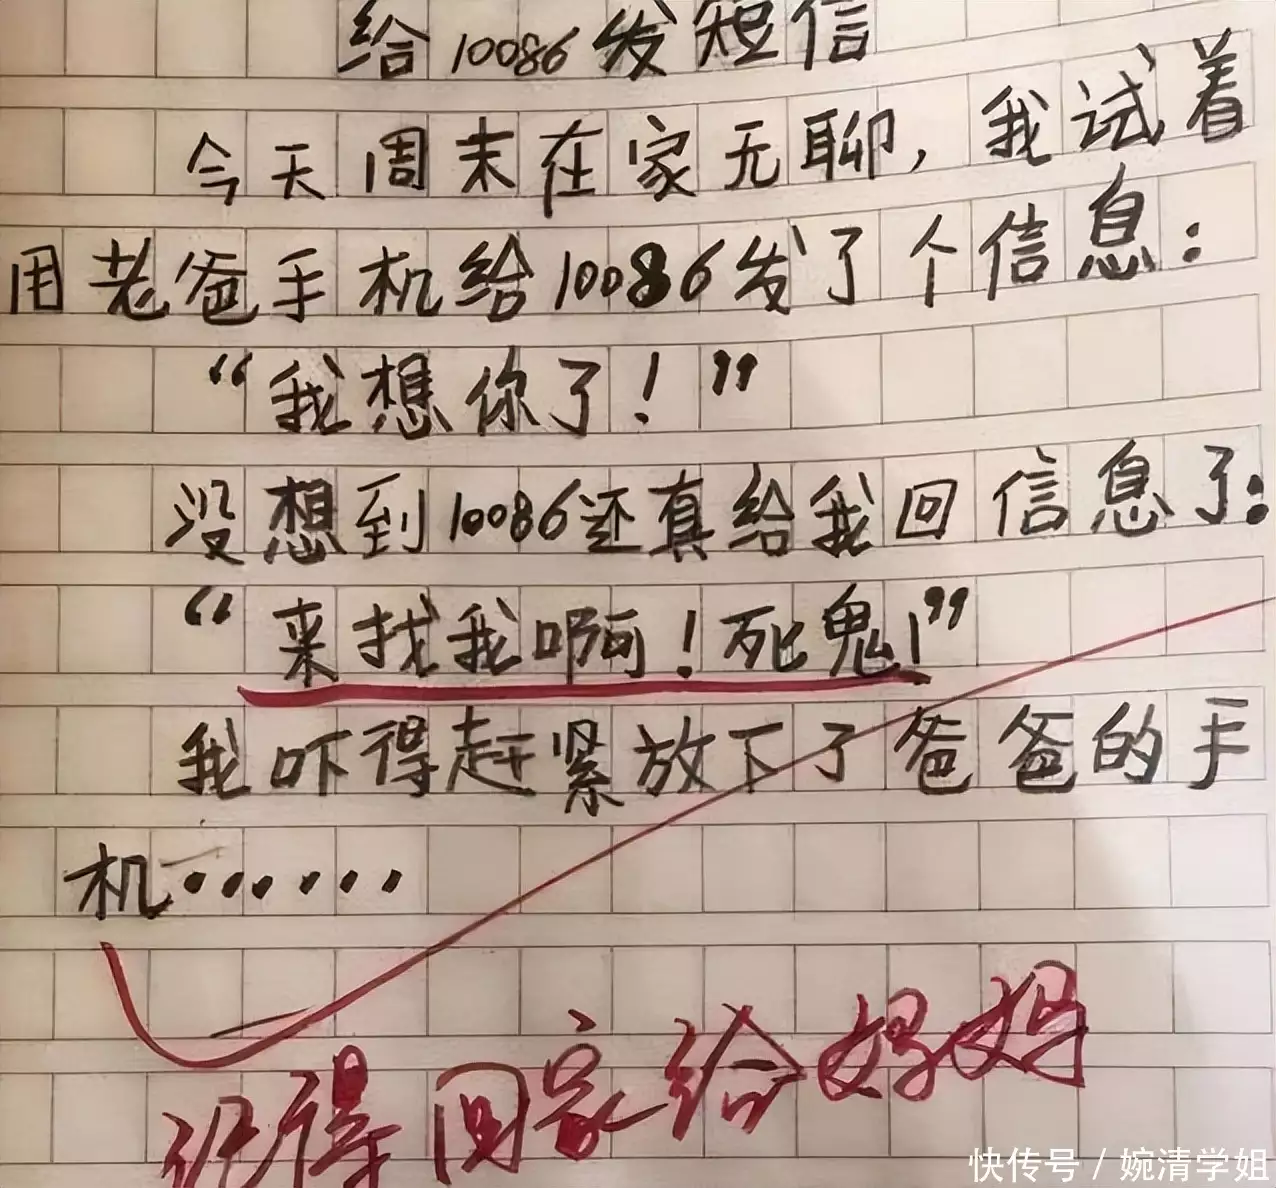 给10086发短信
今天周末在家无聊，我试着
用老爸手机给10086发了个信息：
“我想你了！”
没想到10086还真给我回信息了：
“来找我啊！死鬼！”
我吓得赶紧放下了爸爸的手
机……
记得回家给妈妈
快传号／婉清学姐